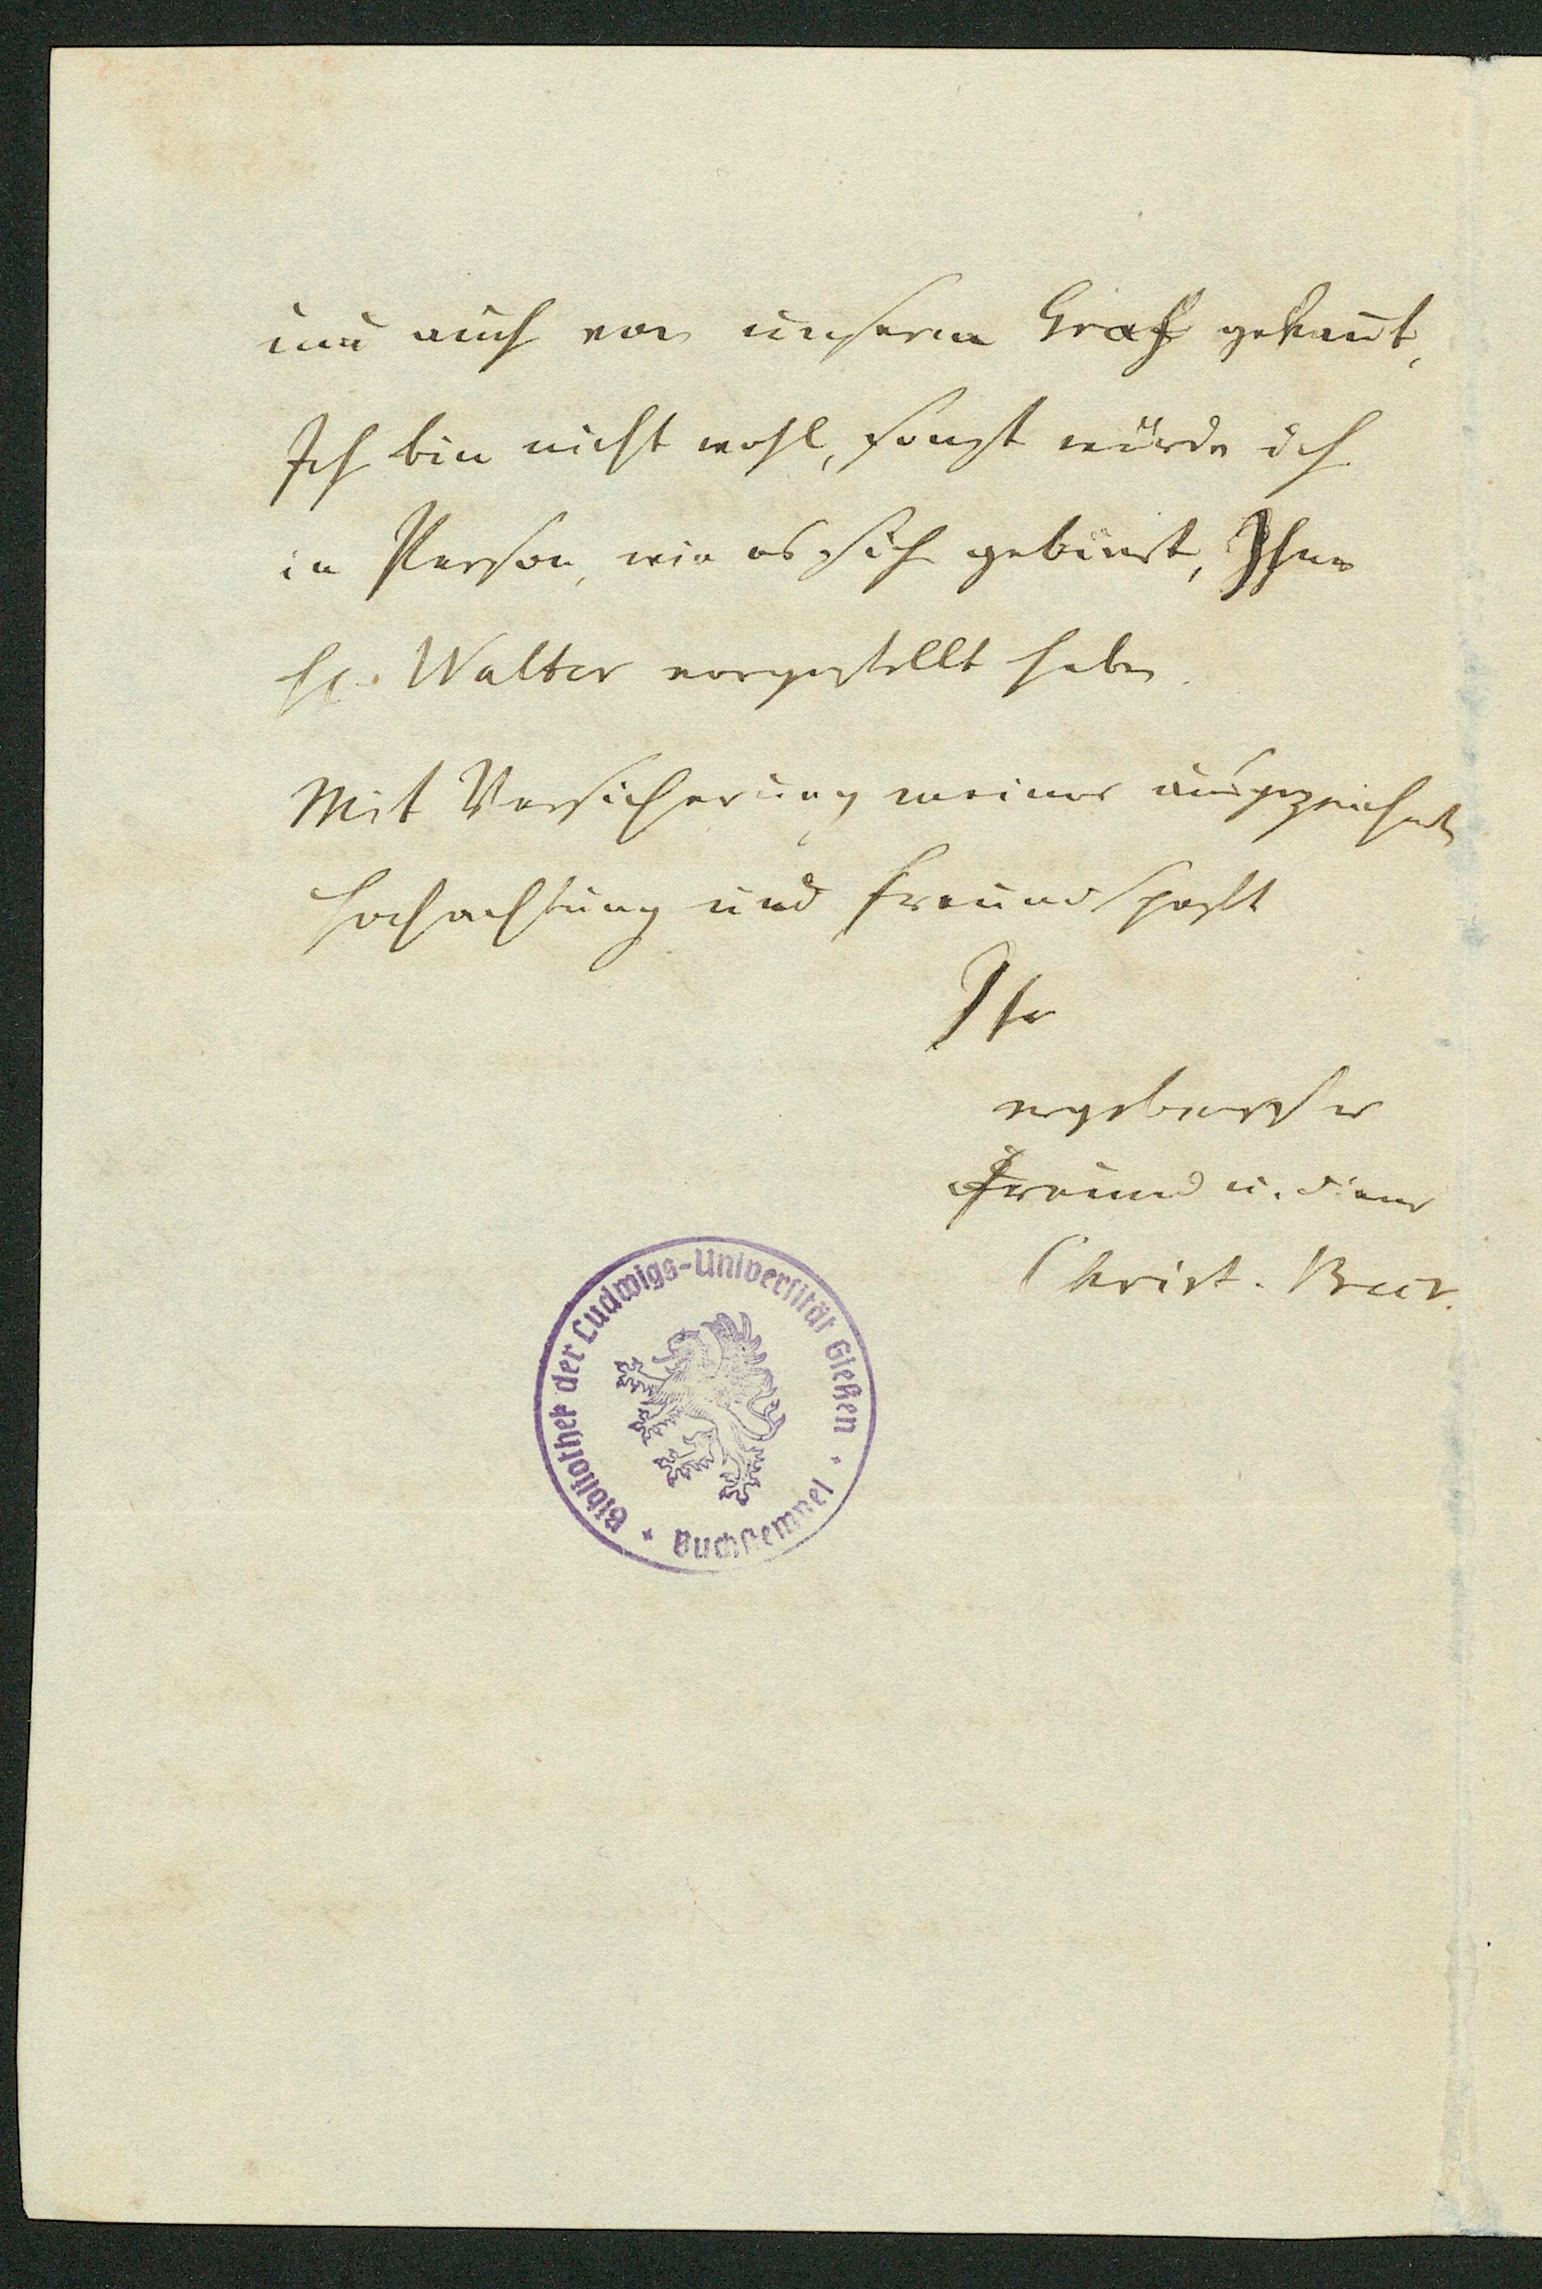 und auch von unserm Graf gekannt,
Ich bin nicht wohl, sonst würde ich
in Person, wie es sich gebürt, Ihnen
H. Walter vorgestellt haben.
Mit Versicherung meiner ausgezeichneten
Hochachtung und Freundschaft
Ihr
ergebenster
Freund u. Diener
Christ.
Bibliothek der Ludwigs-Universität Gießen
Buchstempel